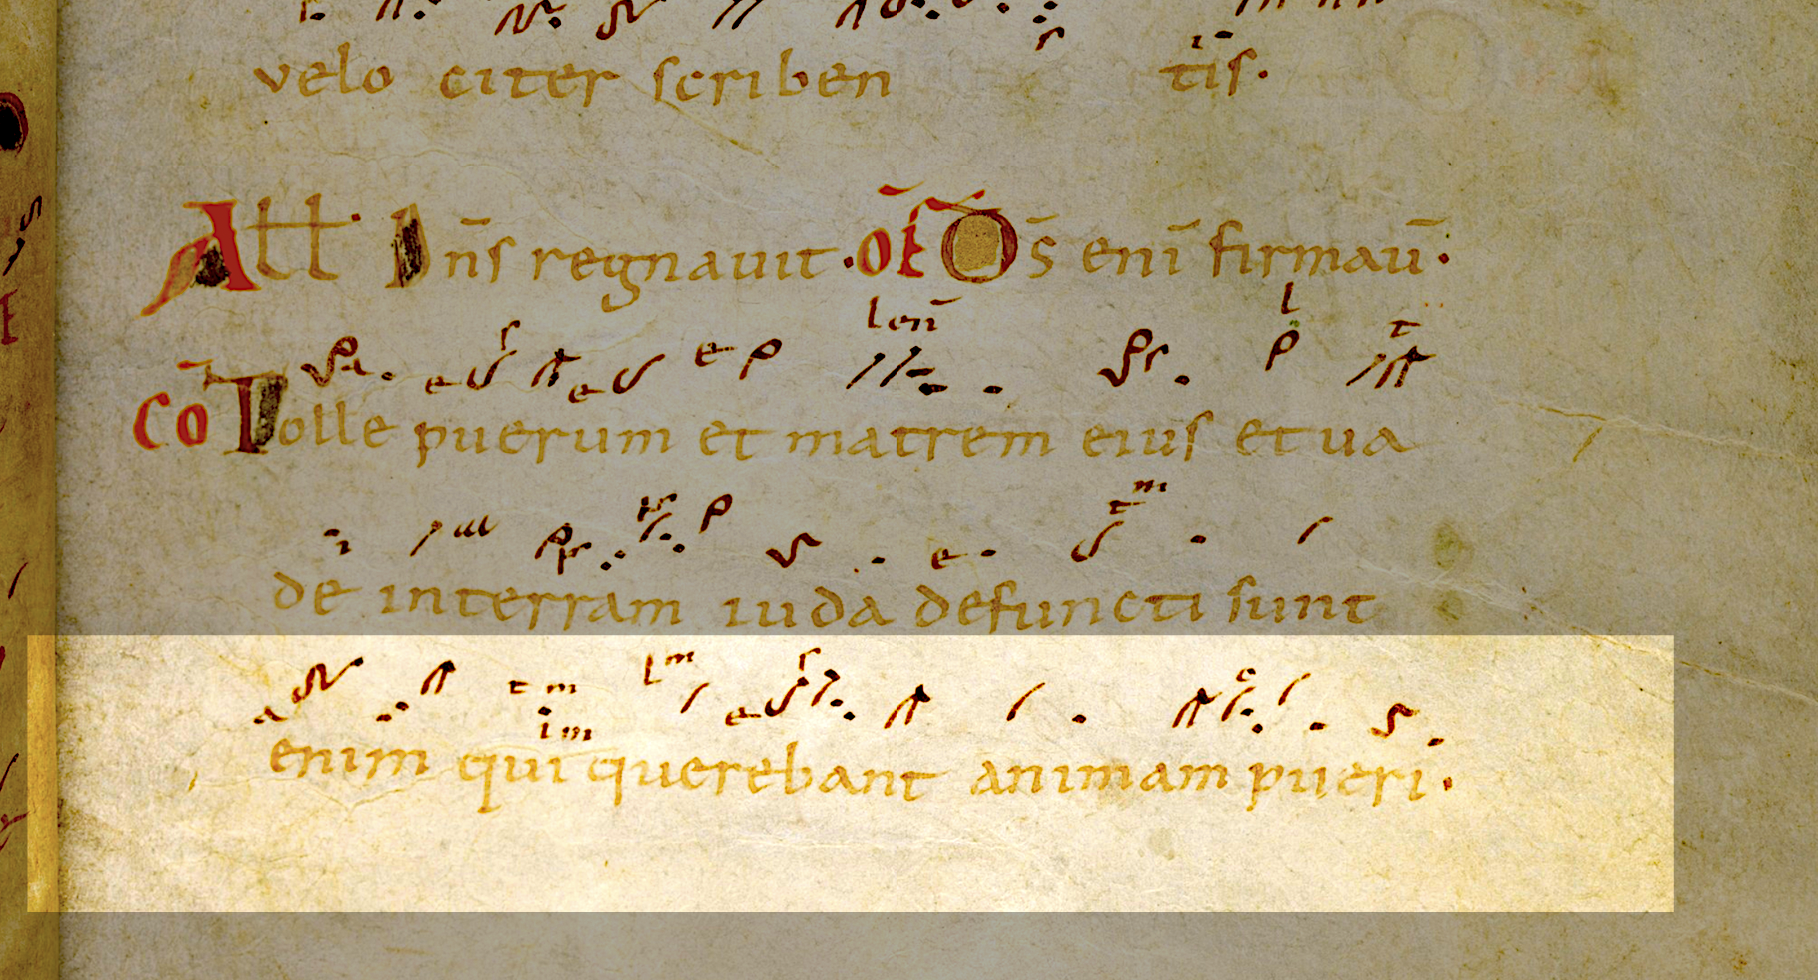 velo citer scriben tis.
Att Dn̄s regnauit. OF D̄s eni firmau̅.
CŌ Tolle puerum et matrem eius et ua
de interram iuda defuncti sunt
enim qui querebant animam pueri.